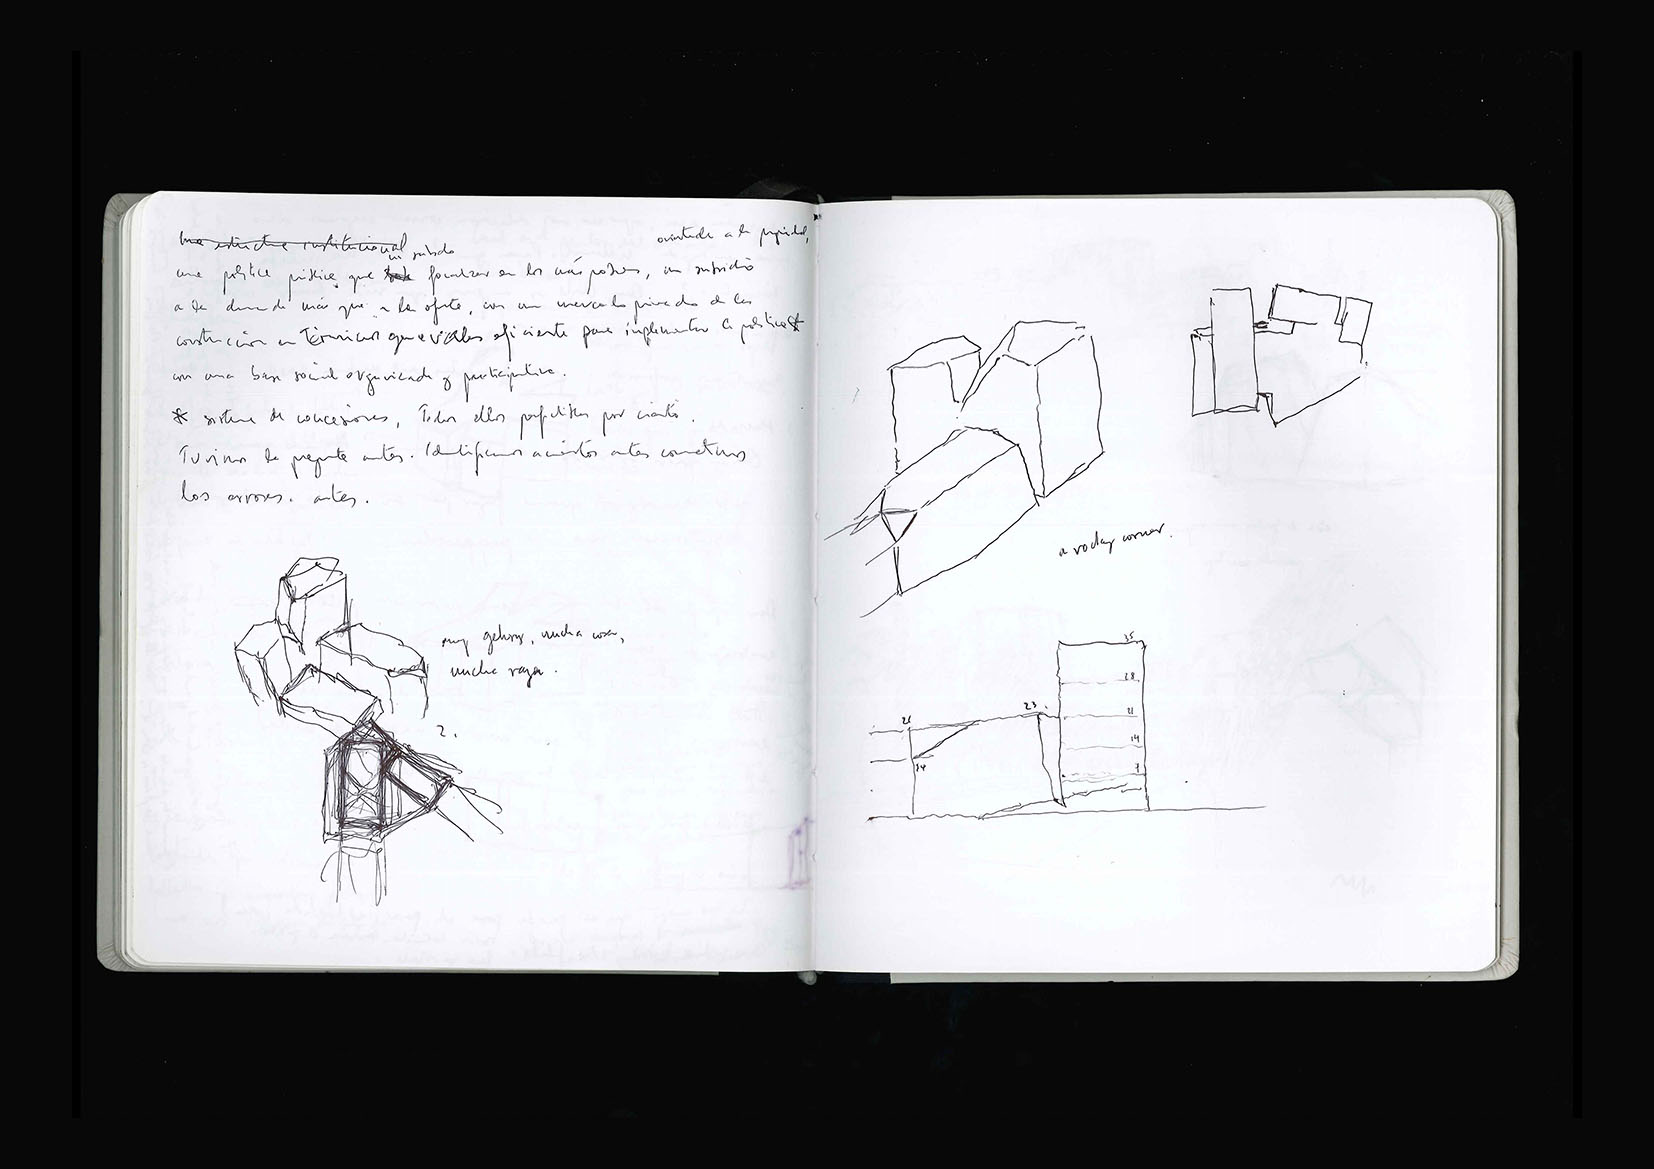 una estructura institucional
un subsidio
orientado a la propiedad,
una política pública que focalizar en los más pobres, un subsidio
a la demanda más que a la oferta, con un mercado privado de la
construcción en términos generales eficiente para implementar la política*
con una base social organizada y participativa.
* sistema de concesiones, Todos ellos perfectibles por cierto.
Tuvimos la pregunta antes. Identificamos aciertos antes cometimos
los errores. antes.
muy gehry, mucha cosa,
mucha raya.
2.
a rocky corner.
35
28
21
14
7
21
23
14